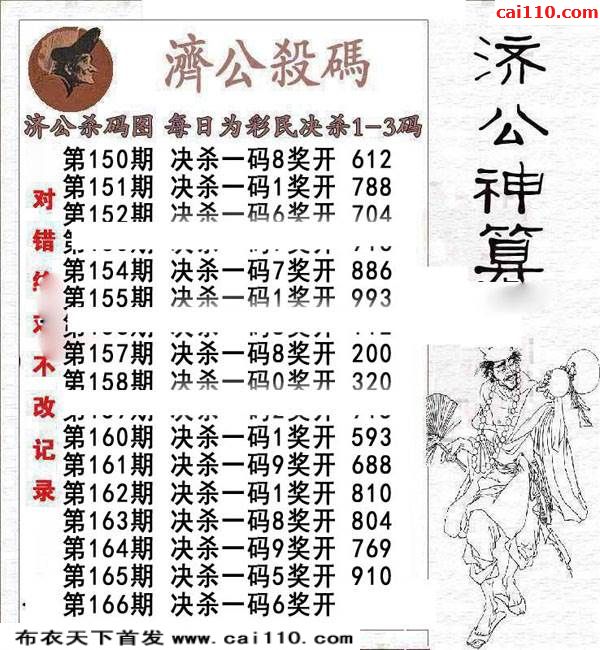 cai110.com
濟公殺碼
济公杀码图 每日为彩民决杀1-3码
第150期 决杀一码8奖开 612
第151期 决杀一码1奖开 788
第152期 决杀一码6奖开 704
第154期 决杀一码7奖开 886
第155期 决杀一码1奖开 993
第157期 决杀一码8奖开 200
第158期 决杀一码0奖开 320
第160期 决杀一码1奖开 593
第161期 决杀一码9奖开 688
第162期 决杀一码1奖开 810
第163期 决杀一码8奖开 804
第164期 决杀一码9奖开 769
第165期 决杀一码5奖开 910
第166期 决杀一码6奖开
对错
不改记录
济公神算
布衣天下首发 www.cai110.com